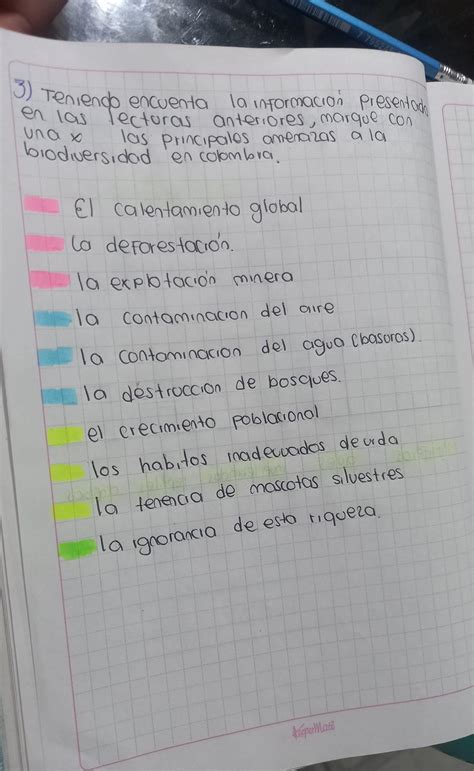 3) Teniendo encuenta la información Presentada
en las lecturas anteriores, marque con
una x las Principales amenazas a la
biodiversidad en colombia.
El calentamiento global
la deforestación.
la explotación minera
la contaminacion del aire
la contaminacion del agua (basoros).
la destruccion de bosques.
el crecimiento poblacional
los habitos inadecuados de vida
la tenencia de mascotas silvestres
la ignorancia de esta riqueza.